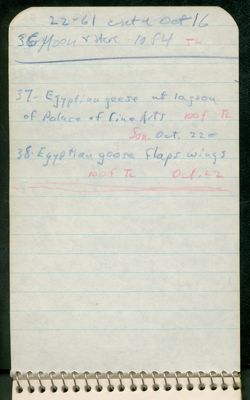 22-61 Oct 16
36 Moon & 108 f TL
37- Egyptian geese at lagoon
of Palace of Fine Arts 100 f TL
Sun Oct. 22
38- Egyptian goose flaps wings
100 f TL Oct. 22